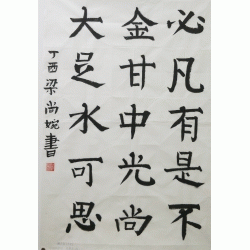 必凡有是不
金甘中光尚
大足水可思
丁酉梁尚婉書